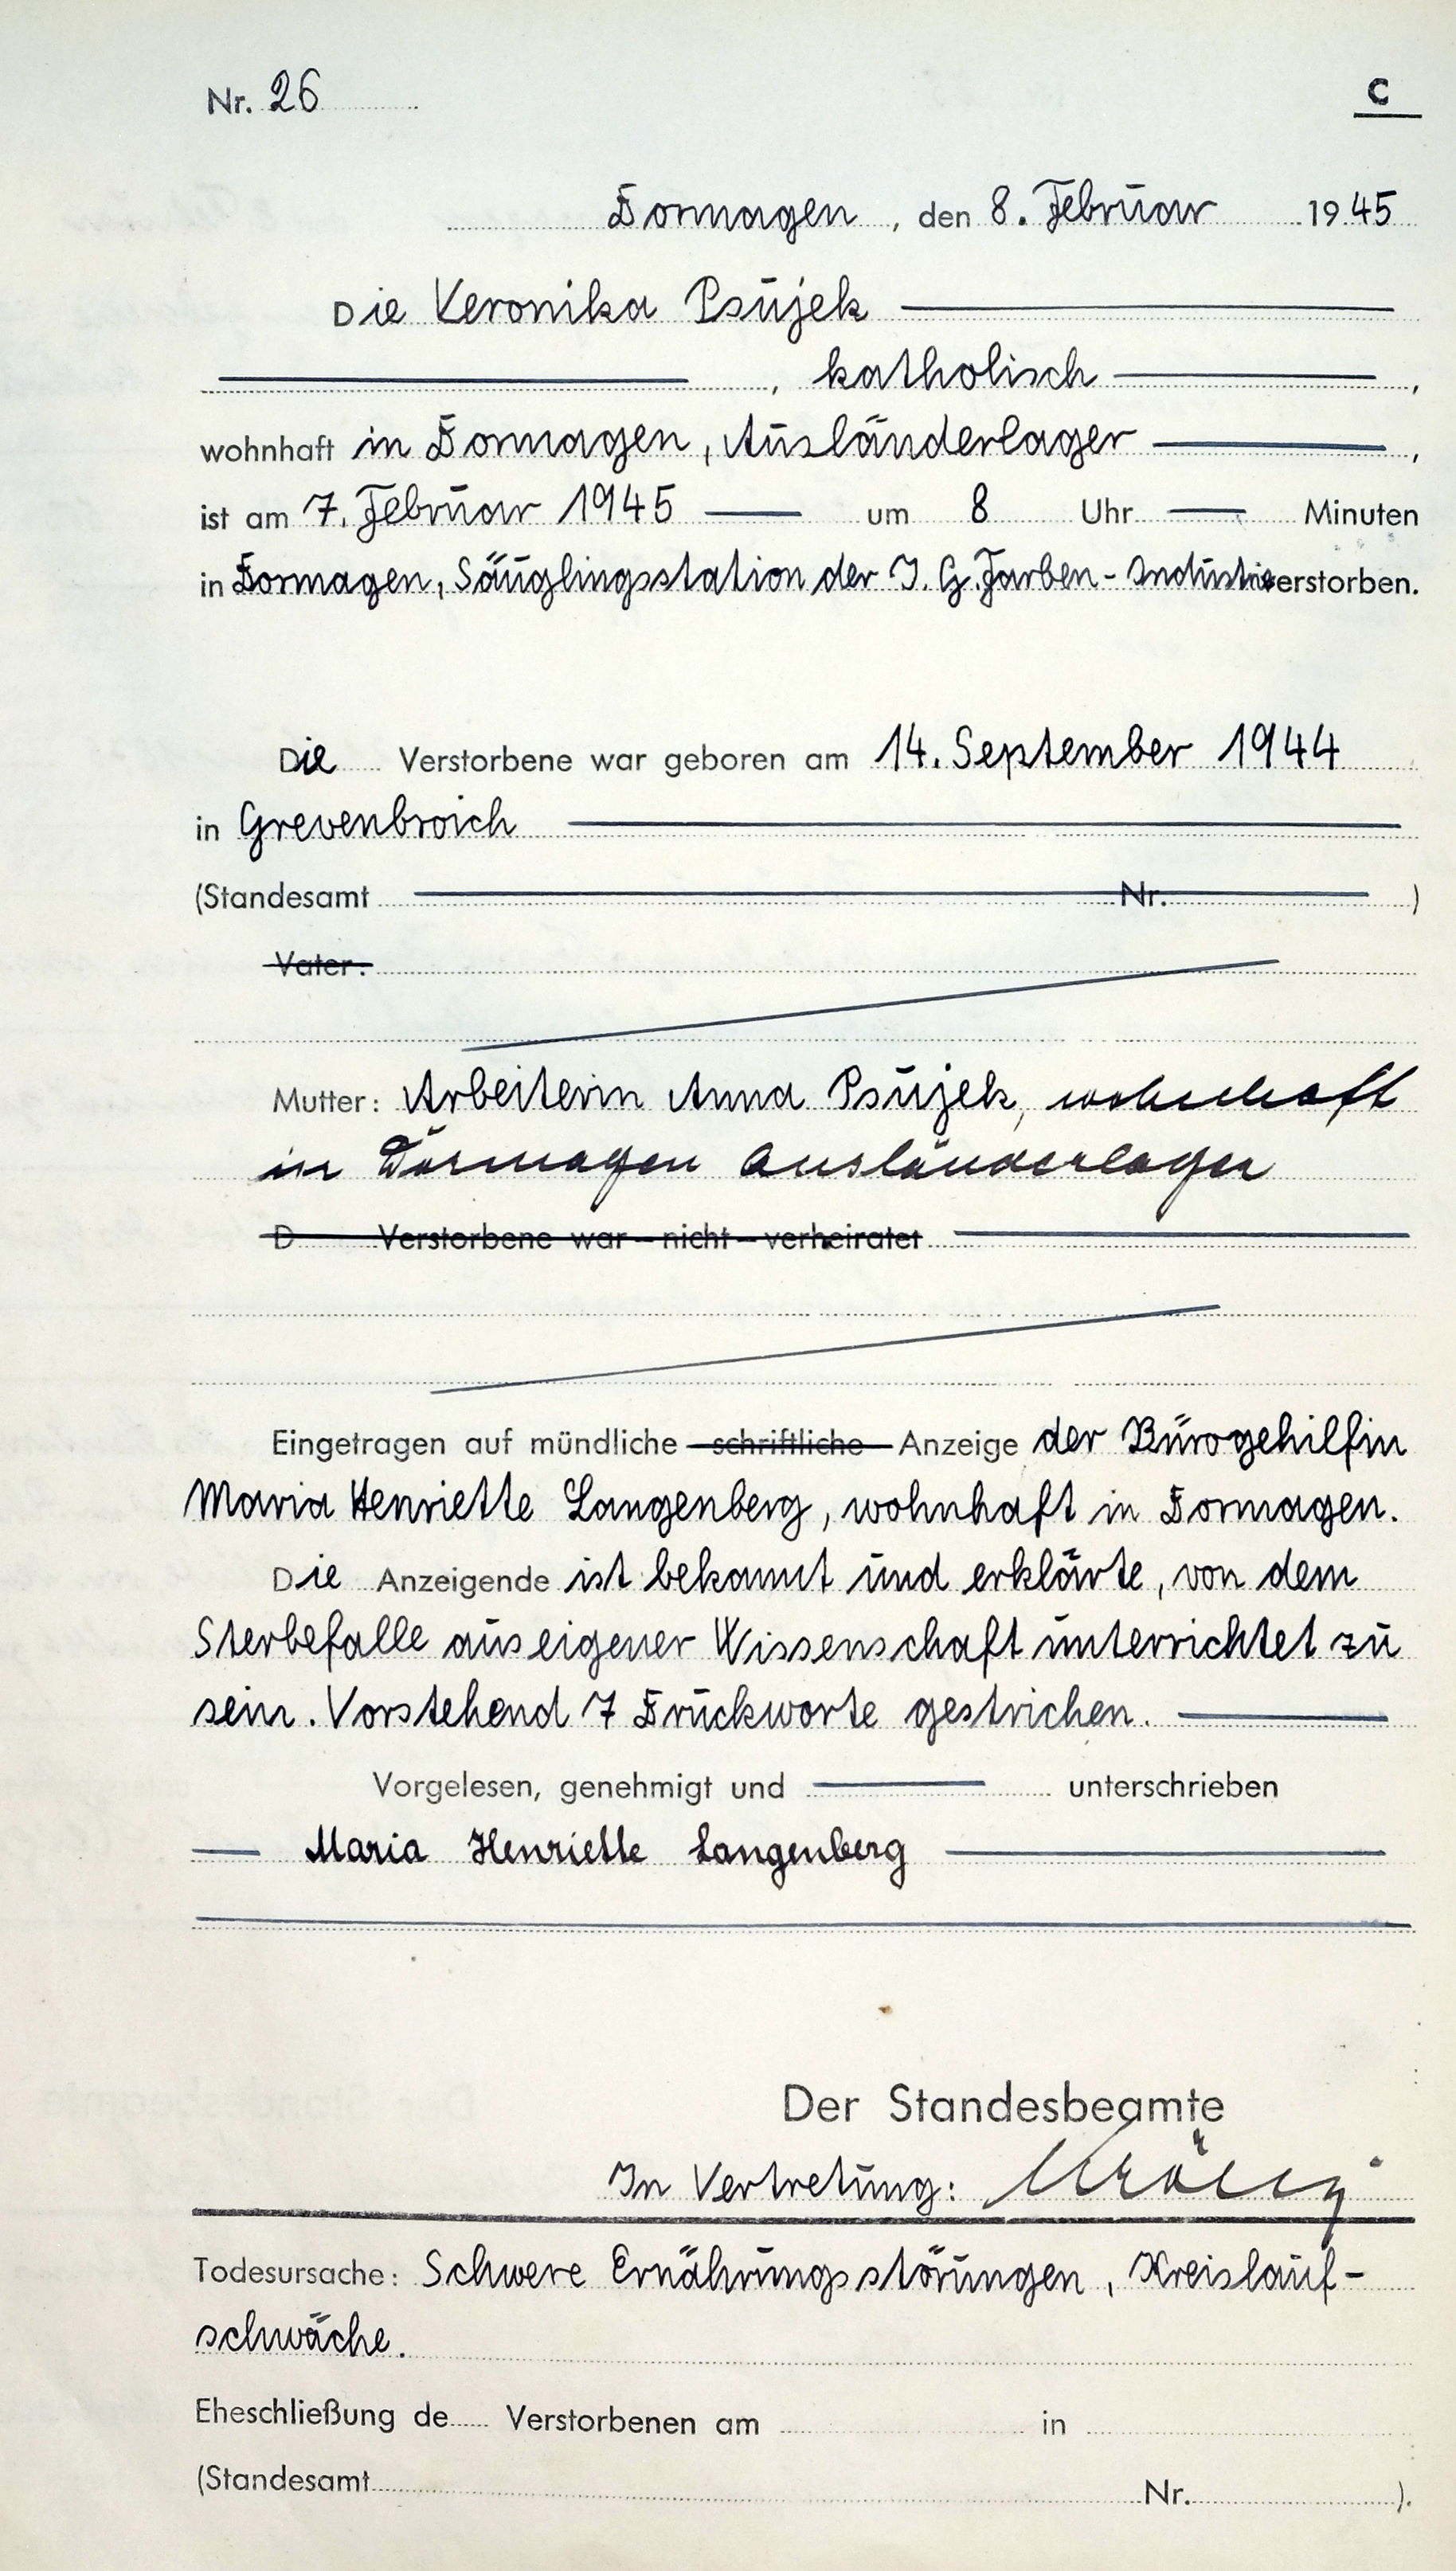 Nr. 26
C
Dormagen, den 8. Februar 1945
Die Veronika Psujek
, katholisch ,
wohnhaft in Dormagen, Ausländerlager ,
ist am 7. Februar 1945 um 8 Uhr Minuten
in Dormagen, Säuglingsstation der I. G. Farben-Industrie verstorben.
Die Verstorbene war geboren am 14. September 1944
in Grevenbroich
(Standesamt Nr. )
Vater:
Mutter: Arbeiterin Anna Psujek, wohnhaft
in Dormagen Ausländerlager
D Verstorbene war – nicht – verheiratet
Eingetragen auf mündliche – schriftliche – Anzeige der Bürogehilfin
Maria Henriette Langenberg, wohnhaft in Dormagen.
Die Anzeigende ist bekannt und erklärte, von dem
Sterbefalle aus eigener Wissenschaft unterrichtet zu
sein. Vorstehend 7 Druckworte gestrichen.
Vorgelesen, genehmigt und unterschrieben
Maria Henriette Langenberg
Der Standesbeamte
In Vertretung:
Todesursache: Schwere Ernährungsstörungen, Kreislauf-
schwäche.
Eheschließung de Verstorbenen am in
(Standesamt Nr. ).